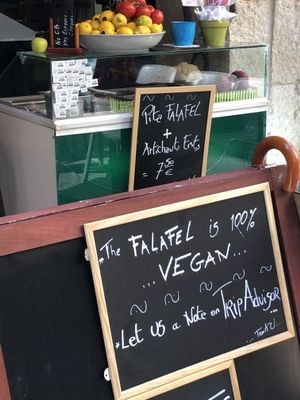 Pita FALAFEL
+
Artichauts Frits
= 7,50
€
"The FALAFEL is 100%
... VEGAN ...
*Let us a Note on TripAdvisor